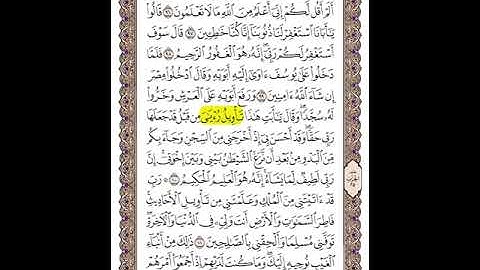 أَلَمْ أَقُل لَّكُمْ إِنِّىٓ أَعْلَمُ مِنَ ٱللَّهِ مَا لَا تَعْلَمُونَ ٩٦ قَالُوا۟
يَـٰٓأَبَانَا ٱسْتَغْفِرْ لَنَا ذُنُوبَنَآ إِنَّا كُنَّا خَـٰطِـِٔينَ ٩٧ قَالَ سَوْفَ
أَسْتَغْفِرُ لَكُمْ رَبِّىٓ إِنَّهُۥ هُوَ ٱلْغَفُورُ ٱلرَّحِيمُ ٩٨ فَلَمَّا
دَخَلُوا۟ عَلَىٰ يُوسُفَ ءَاوَىٰٓ إِلَيْهِ أَبَوَيْهِ وَقَالَ ٱدْخُلُوا۟ مِصْرَ
إِن شَآءَ ٱللَّهُ ءَامِنِينَ ٩٩ وَرَفَعَ أَبَوَيْهِ عَلَى ٱلْعَرْشِ وَخَرُّوا۟
لَهُۥ سُجَّدًا وَقَالَ يَـٰٓأَبَتِ هَـٰذَا تَأْوِيلُ رُءْيَـٰىَ مِن قَبْلُ قَدْ جَعَلَهَا
رَبِّى حَقًّا وَقَدْ أَحْسَنَ بِىٓ إِذْ أَخْرَجَنِى مِنَ ٱلسِّجْنِ وَجَآءَ بِكُم
مِّنَ ٱلْبَدْوِ مِنۢ بَعْدِ أَن نَّزَغَ ٱلشَّيْطَـٰنُ بَيْنِى وَبَيْنَ إِخْوَتِىٓ إِنَّ
رَبِّى لَطِيفٌ لِّمَا يَشَآءُ إِنَّهُۥ هُوَ ٱلْعَلِيمُ ٱلْحَكِيمُ ١٠٠ رَبِّ
قَدْ ءَاتَيْتَنِى مِنَ ٱلْمُلْكِ وَعَلَّمْتَنِى مِن تَأْوِيلِ ٱلْأَحَادِيثِ
فَاطِرَ ٱلسَّمَـٰوَٰتِ وَٱلْأَرْضِ أَنتَ وَلِىِّۦ فِى ٱلدُّنْيَا وَٱلْـَٔاخِرَةِ
تَوَفَّنِى مُسْلِمًا وَأَلْحِقْنِى بِٱلصَّـٰلِحِينَ ١٠١ ذَٰلِكَ مِنْ أَنۢبَآءِ
ٱلْغَيْبِ نُوحِيهِ إِلَيْكَ وَمَا كُنتَ لَدَيْهِمْ إِذْ أَجْمَعُوٓا۟ أَمْرَهُمْ